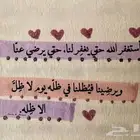 استغفر الله حتى يغفر لنا، حتى يرضي عنا
ويرضينا فيُظلنا في ظلّه يوم لا ظِلَّ
الا ظله.